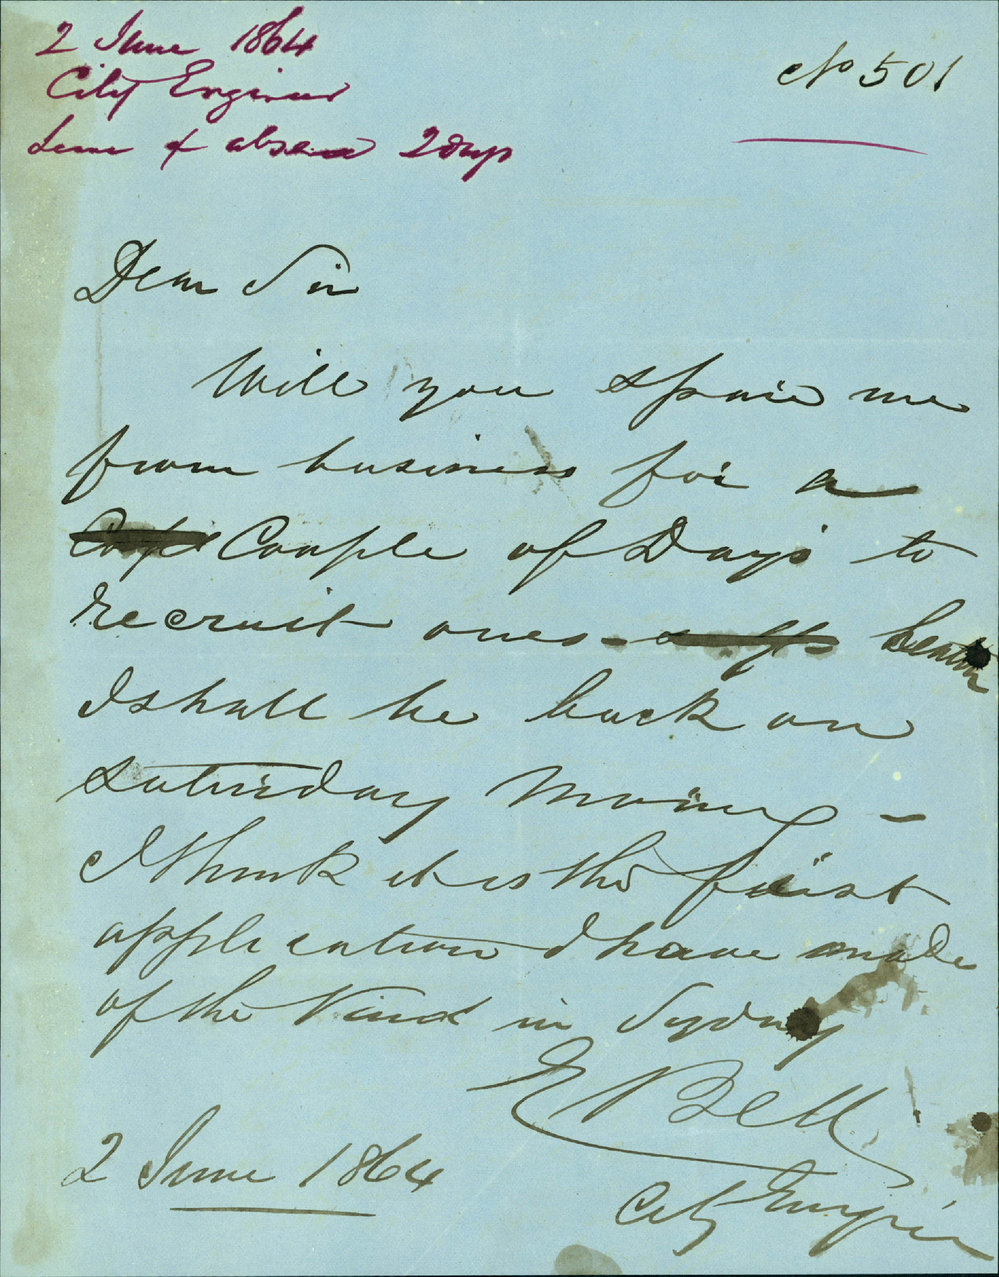 2 June 1864
City Engineer
Leave of absence 2 days
No 501
Dear Sir
Will you spare me
from business for a
Coupl Couple of Days to
recruit ones health
I shall be back on
Saturday Morning –
I think it is the first
application I have made
of the Kind in Sydney
E Bell
City Engineer
2 June 1864